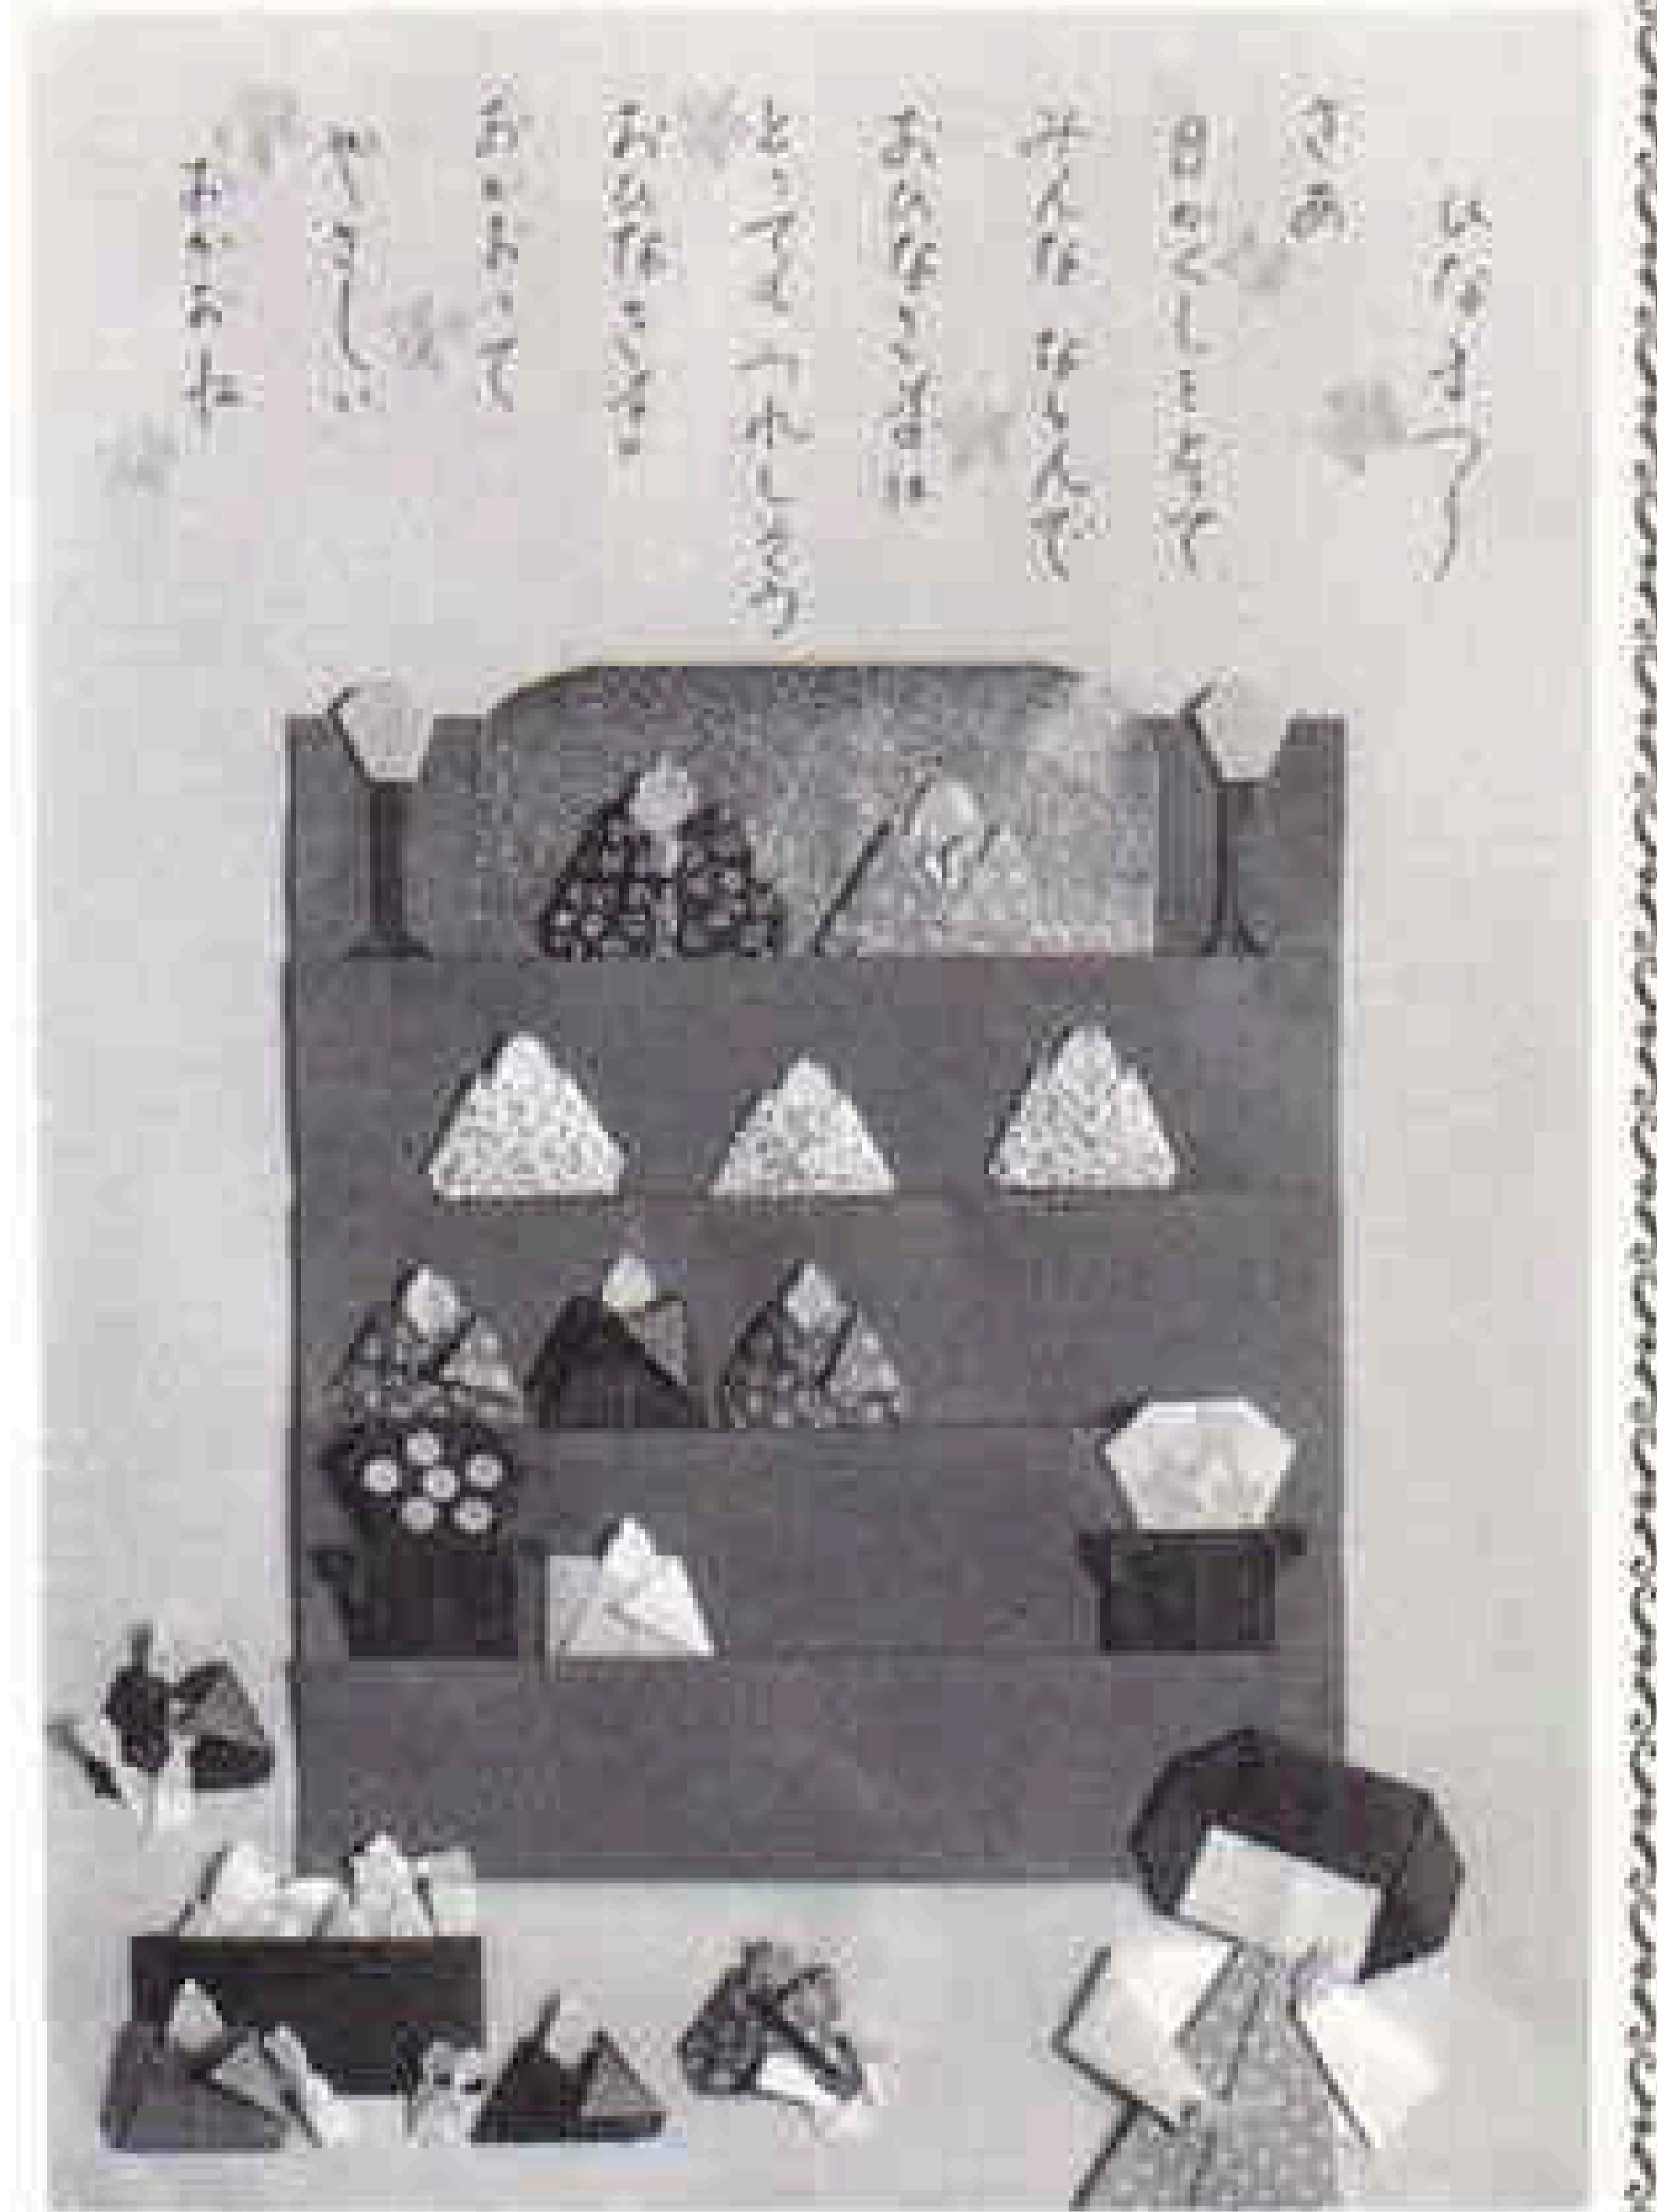 ひなまつり
さあ
目かくしをとって
みんな ならんで
おひなさまは
とってもうれしそう
おひなさまの
おかおって
やさしい
おかおね